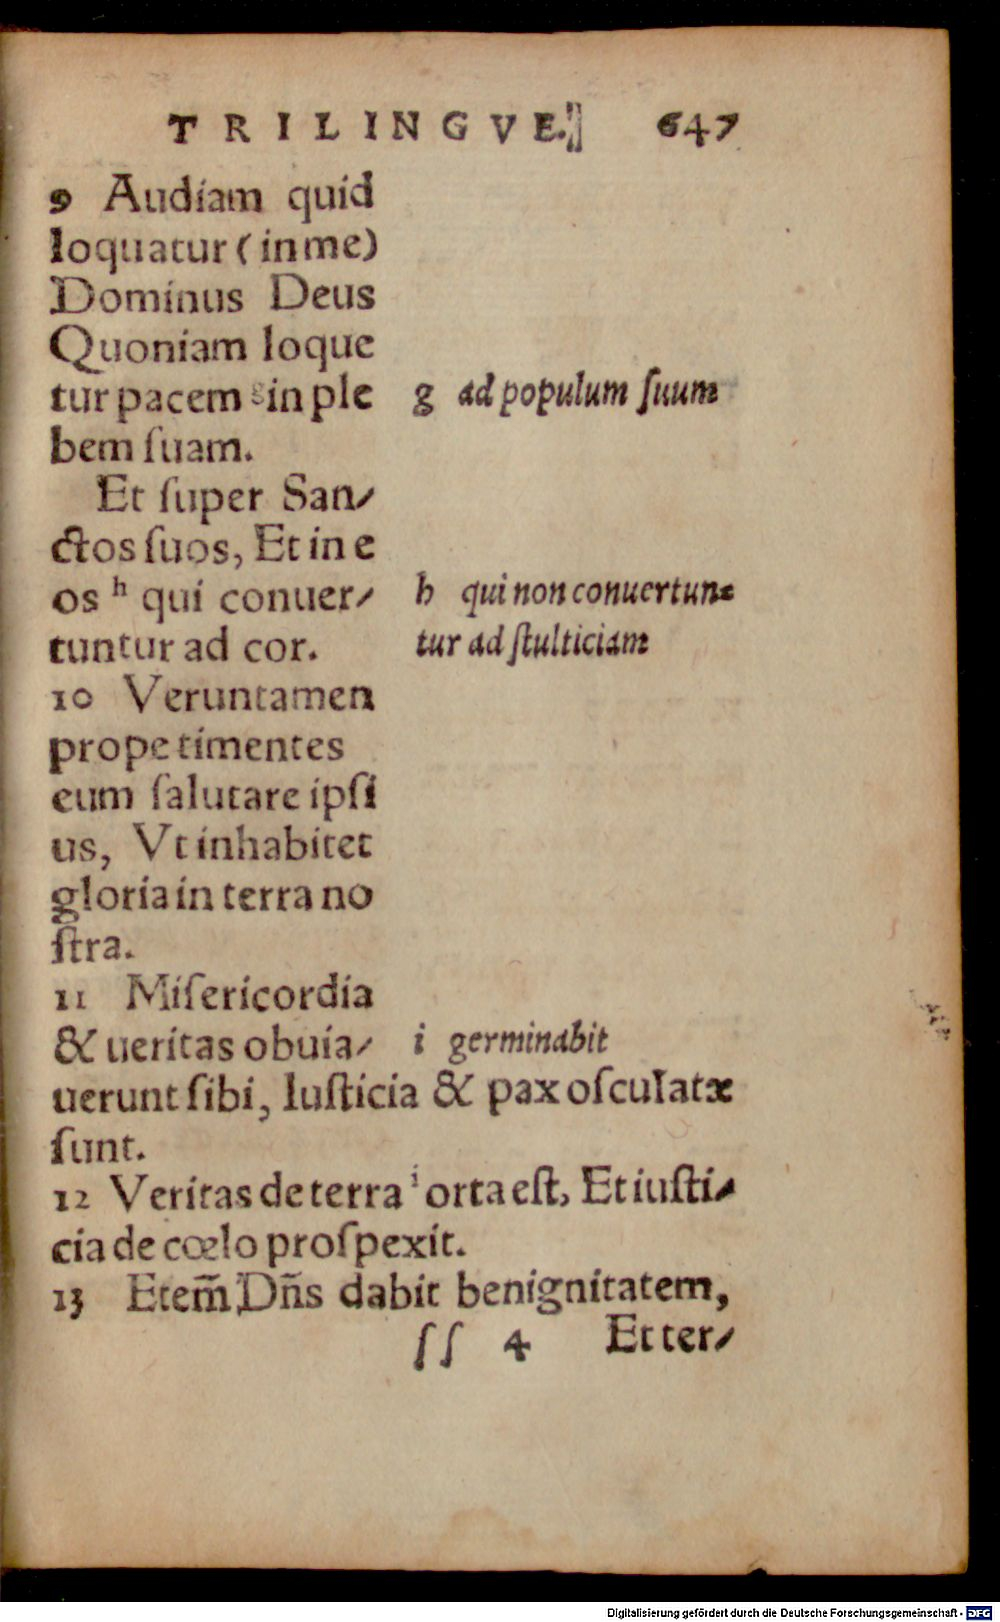 TRILINGVE. 647
9 Audiam quid
loquatur (in me)
Dominus Deus
Quoniam loque
tur pacem g in ple
g ad populum ſuum
bem ſuam.
Et ſuper San/
ctos ſuos, Et in e
os h qui conuer/
h qui non conuertun=
tuntur ad cor.
tur ad ſtulticiam
10 Veruntamen
prope timentes
eum ſalutare ipſi
us, Vt inhabitet
gloria in terra no
ſtra.
11 Miſericordia
& ueritas obuia/
i germinabit
uerunt ſibi, Iuſticia & pax oſculatæ
ſunt.
12 Veritas de terra i orta eſt, Et iuſti/
cia de cœlo proſpexit.
13 Etem̃ Dñs dabit benignitatem,
ſſ 4 Et ter/
Digitalisierung gefördert durch die Deutsche Forschungsgemeinschaft - DFG